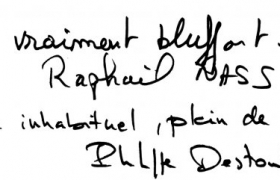 vraiment bluffant.
Raphaël NASS
inhabituel, plein de
Philippe Destou